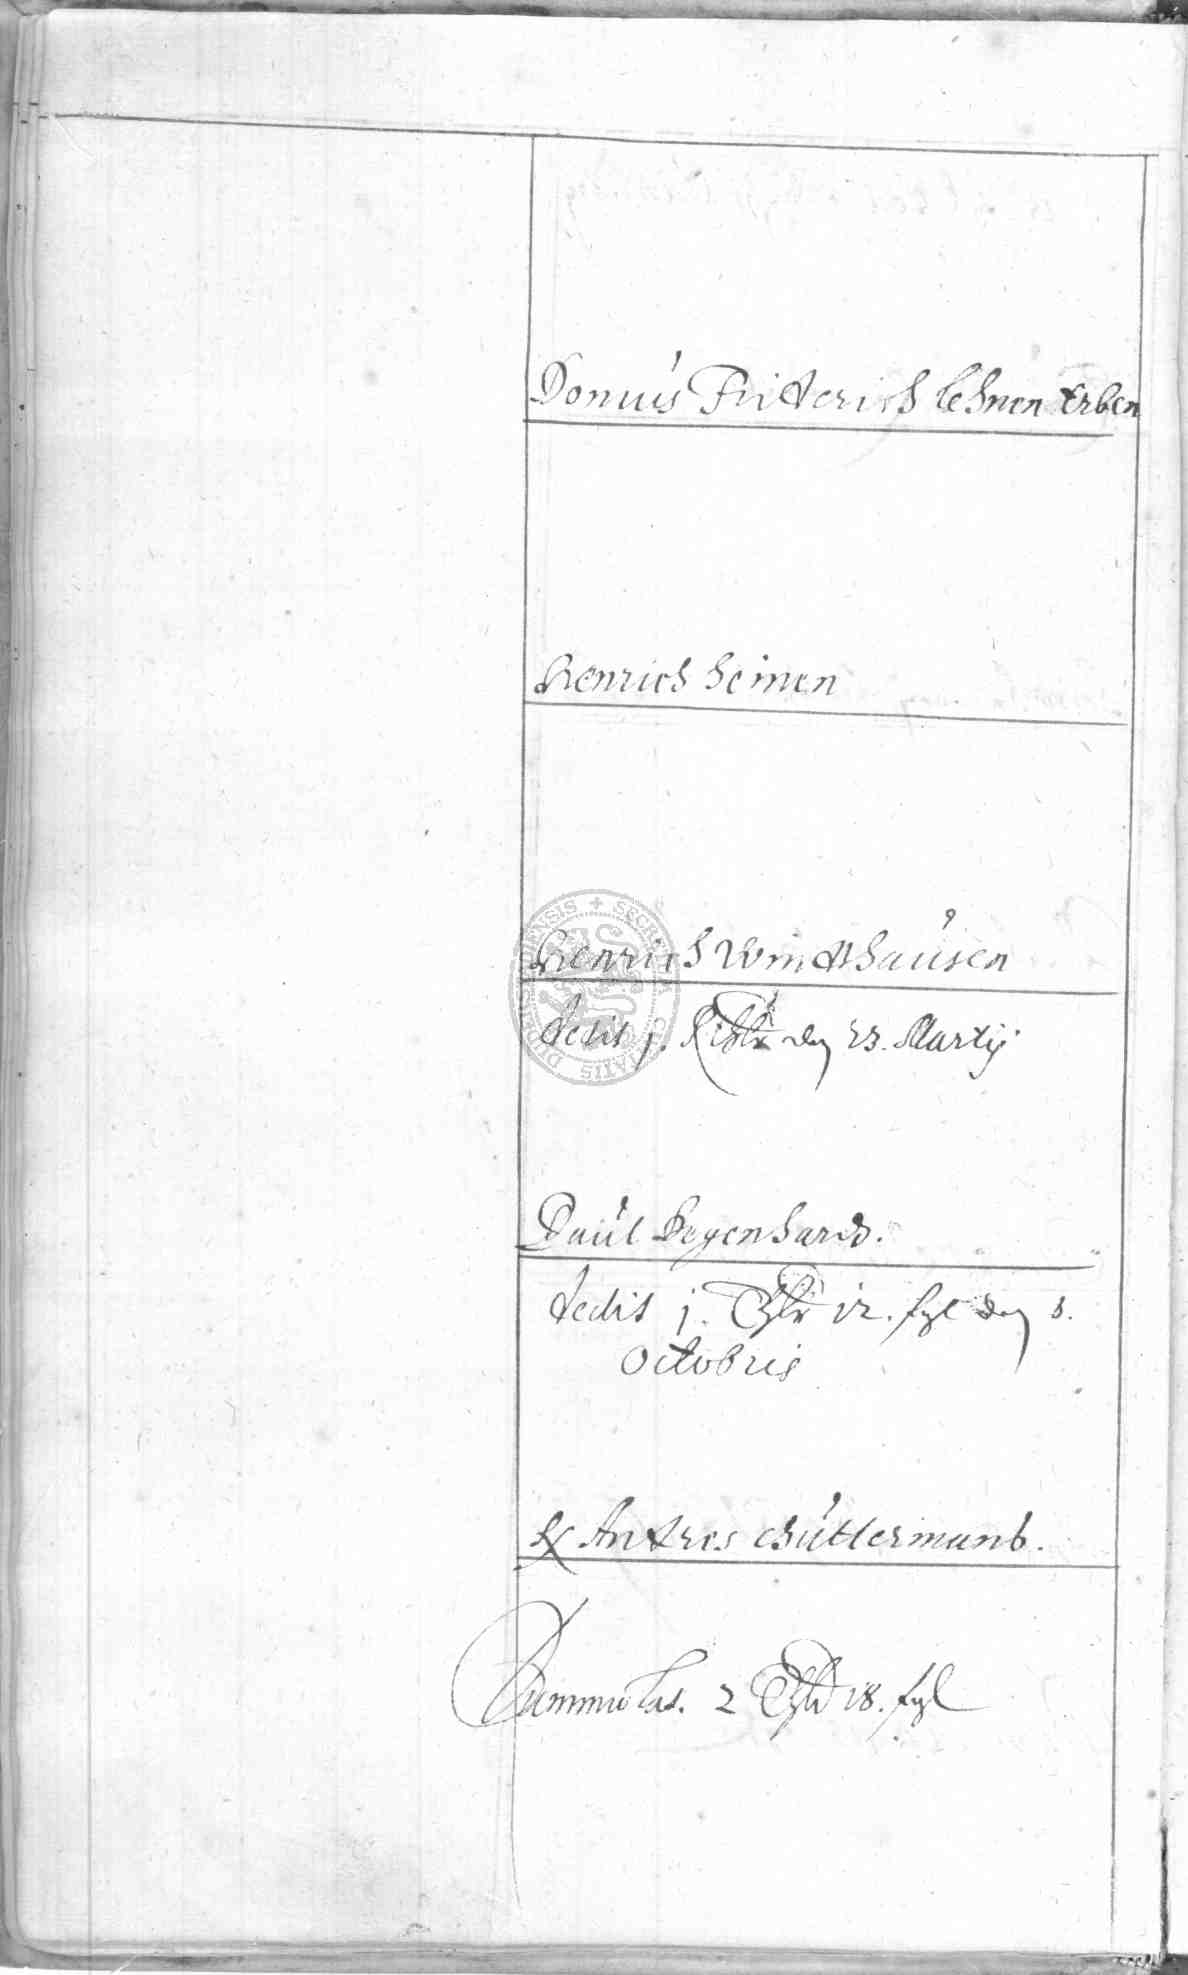 Domus Friderich lehnen Erben
Henrich heimen
Henrich Windthausen
dedit j. Rthlr den 23. Martij
Paul Degenhard.
dedit j. Thlr 12. fgl den 8.
Octobris
Andres Huttermans.
Summa lat. 2 Thlr 18. fgl